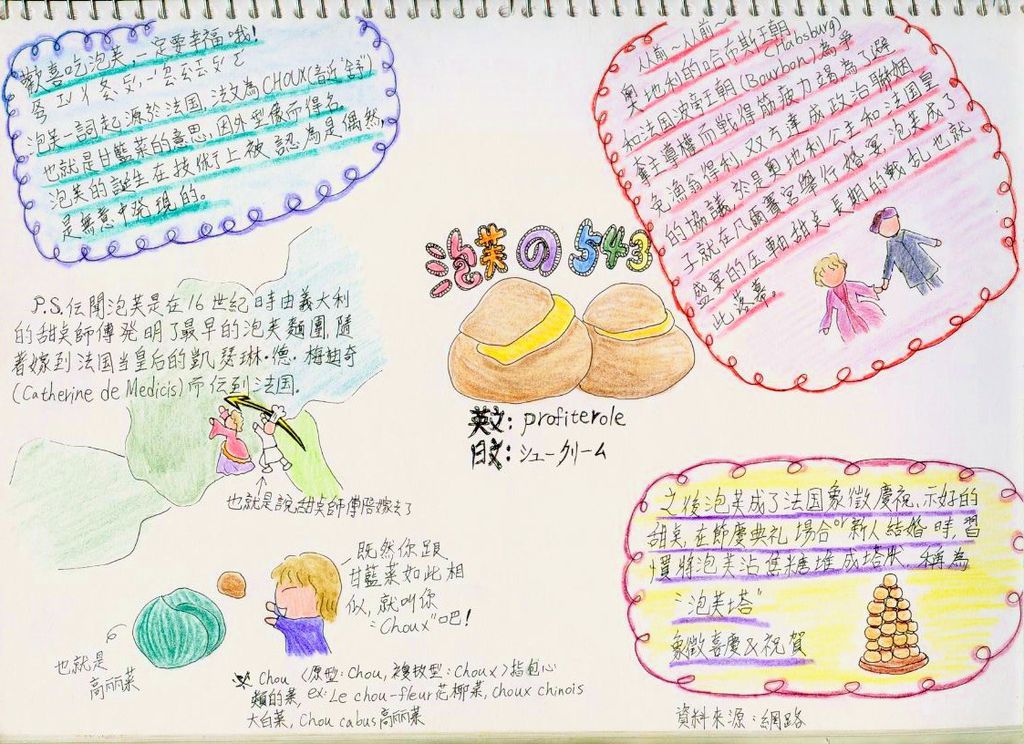 歡喜吃泡芙,一定要幸福哦!
ㄒㄧㄥˋ
泡芙一詞起源於法国,法文為CHOUX(音近"舒")
也就是甘藍菜的意思,因外型像而得名。
泡芙的誕生在技術上被認為是偶然
是無意中発現的。
P.S.伝聞泡芙是在16世紀時由義大利
的甜点師傅発明了最早的泡芙麵團,隨
著嫁到法国当皇后的凱瑟琳·德·梅迪奇
(Catherine de Medicis)而伝到法国.
也就是說甜点師傅陪嫁去了
泡芙の543
英文: profiterole
日文: シュークリーム
从前~从前~
奧地利的哈布斯王朝(Habsburg)
和法国波帝王朝(Bourbon)為爭
拿主導權而戦得筋疲力竭為了避
免漁翁得利,双方達成政治聯姻
的協議,於是奧地利公主和法国皇
子就在凡爾賽宮舉行婚宴,泡芙成了
盛宴的压軸甜点,長期的戦乱也就
此落幕。
之後泡芙成了法国象徵慶祝、示好的
甜点,在節慶典礼場合or新人結婚時,習
慣將泡芙沾焦糖堆成塔狀,稱為
"泡芙塔"
象徵喜慶&祝賀
既然你跟
甘藍菜如此相
似,就叫你
"Choux"吧!
也就是
高丽菜
※ Chou〈原型:Chou,複数型:Choux〉指包心
類的菜, ex: Le chou-fleur花椰菜, choux chinois
大白菜, Chou cabus高丽菜
資料來源:網路